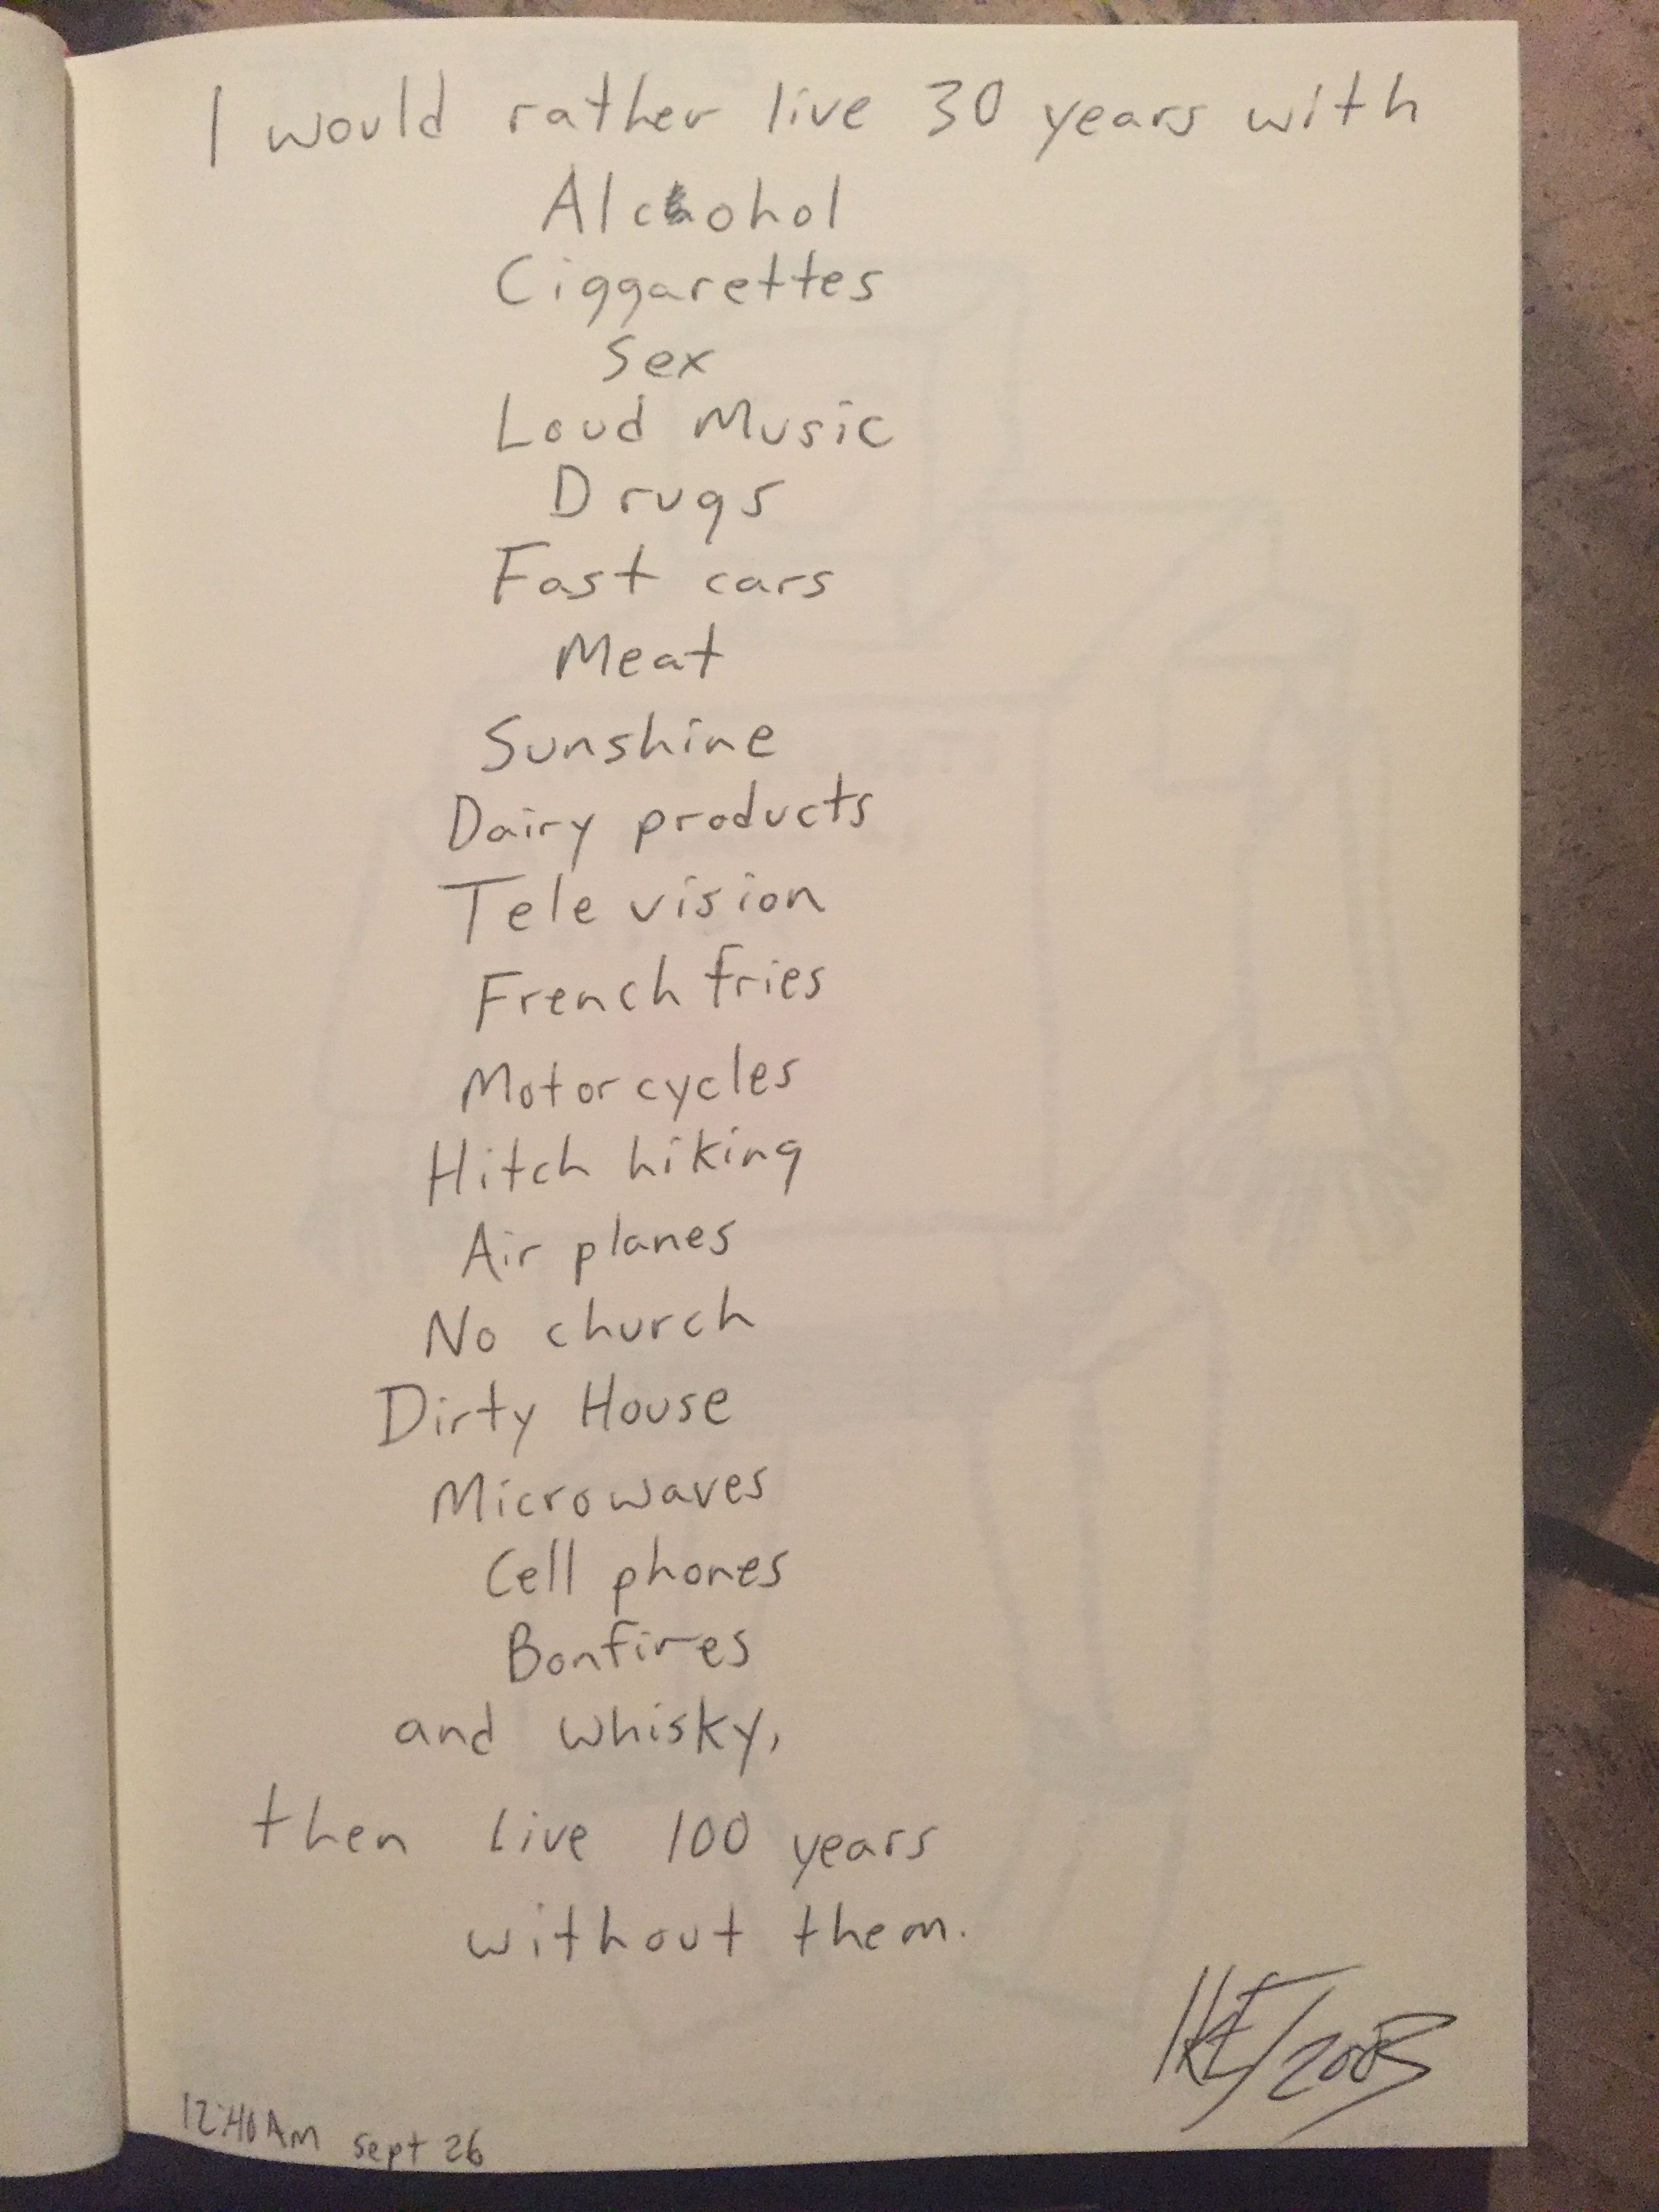 I would rather live 30 years with
Alcohol
Ciggarettes
Sex
Loud Music
Drugs
Fast cars
Meat
Sunshine
Dairy products
Television
French fries
Motorcycles
Hitch hiking
Air planes
No church
Dirty House
Microwaves
Cell phones
Bonfires
and whisky,
then live 100 years
without them.
IKE/2003
12:40AM sept 26